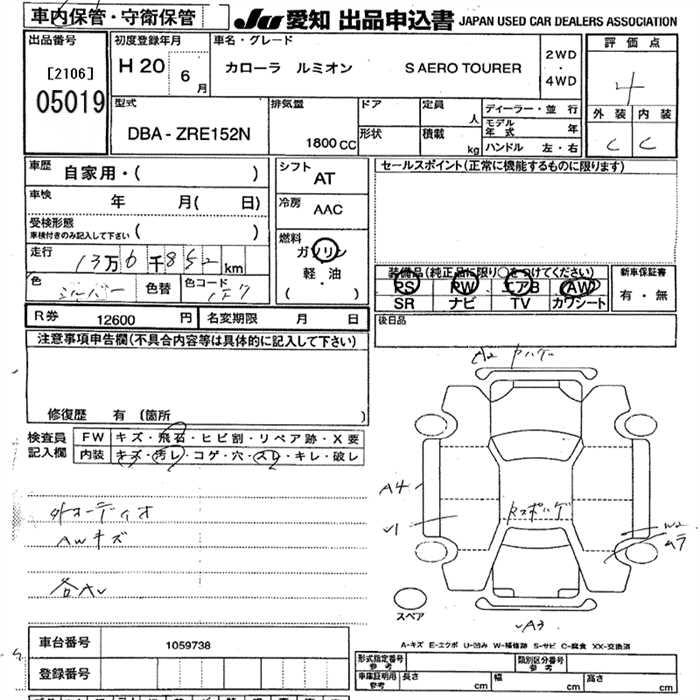 車内保管・守衛保管
JU 愛知 出品申込書 JAPAN USED CAR DEALERS ASSOCIATION
出品番号
[2106]
05019
初度登録年月
H 20 6月
車名・グレード
カローラ ルミオン S AERO TOURER
2WD
・
4WD
評価点
4
外装 内装
C C
型式
DBA - ZRE152N
排気量
1800 CC
ドア
形状
定員
人
積載
kg
ディーラー・並行
モデル年式 年
ハンドル 左・右
車歴 自家用・( )
車検 年 月( 日)
受検形態
車検付きのみ記入して下さい ( )
走行
13万6千852km
色 シルバー 色替 色コード
シフト AT
冷房 AAC
燃料
ガソリン
軽・油
( ・ )
セールスポイント(正常に機能するものに限ります)
装備品(純正品に限り○をつけてください)
PS PW エアB AW
SR ナビ TV カワシート
新車保証書
有・無
R券 12600 円 名変期限 月 日
後日品
注意事項申告欄(不具合内容等は具体的に記入して下さい)
修復歴 有 (箇所
検査員
記入欄
FW キズ・飛石・ヒビ割・リペア跡・X要
内装 キズ・汚レ・コゲ・穴・スレ・キレ・破レ
外オーディオ
AWキズ
A4
W2
ムラ
スペア
A3
A-キズ E-エクボ U-凹み W-補修跡 S-サビ C-腐食 XX-交換済
車台番号 1059738
登録番号
形式指定番号
参考
類別区分番号
参考
車庫証明用
参考
長さ cm 幅 cm 高さ cm